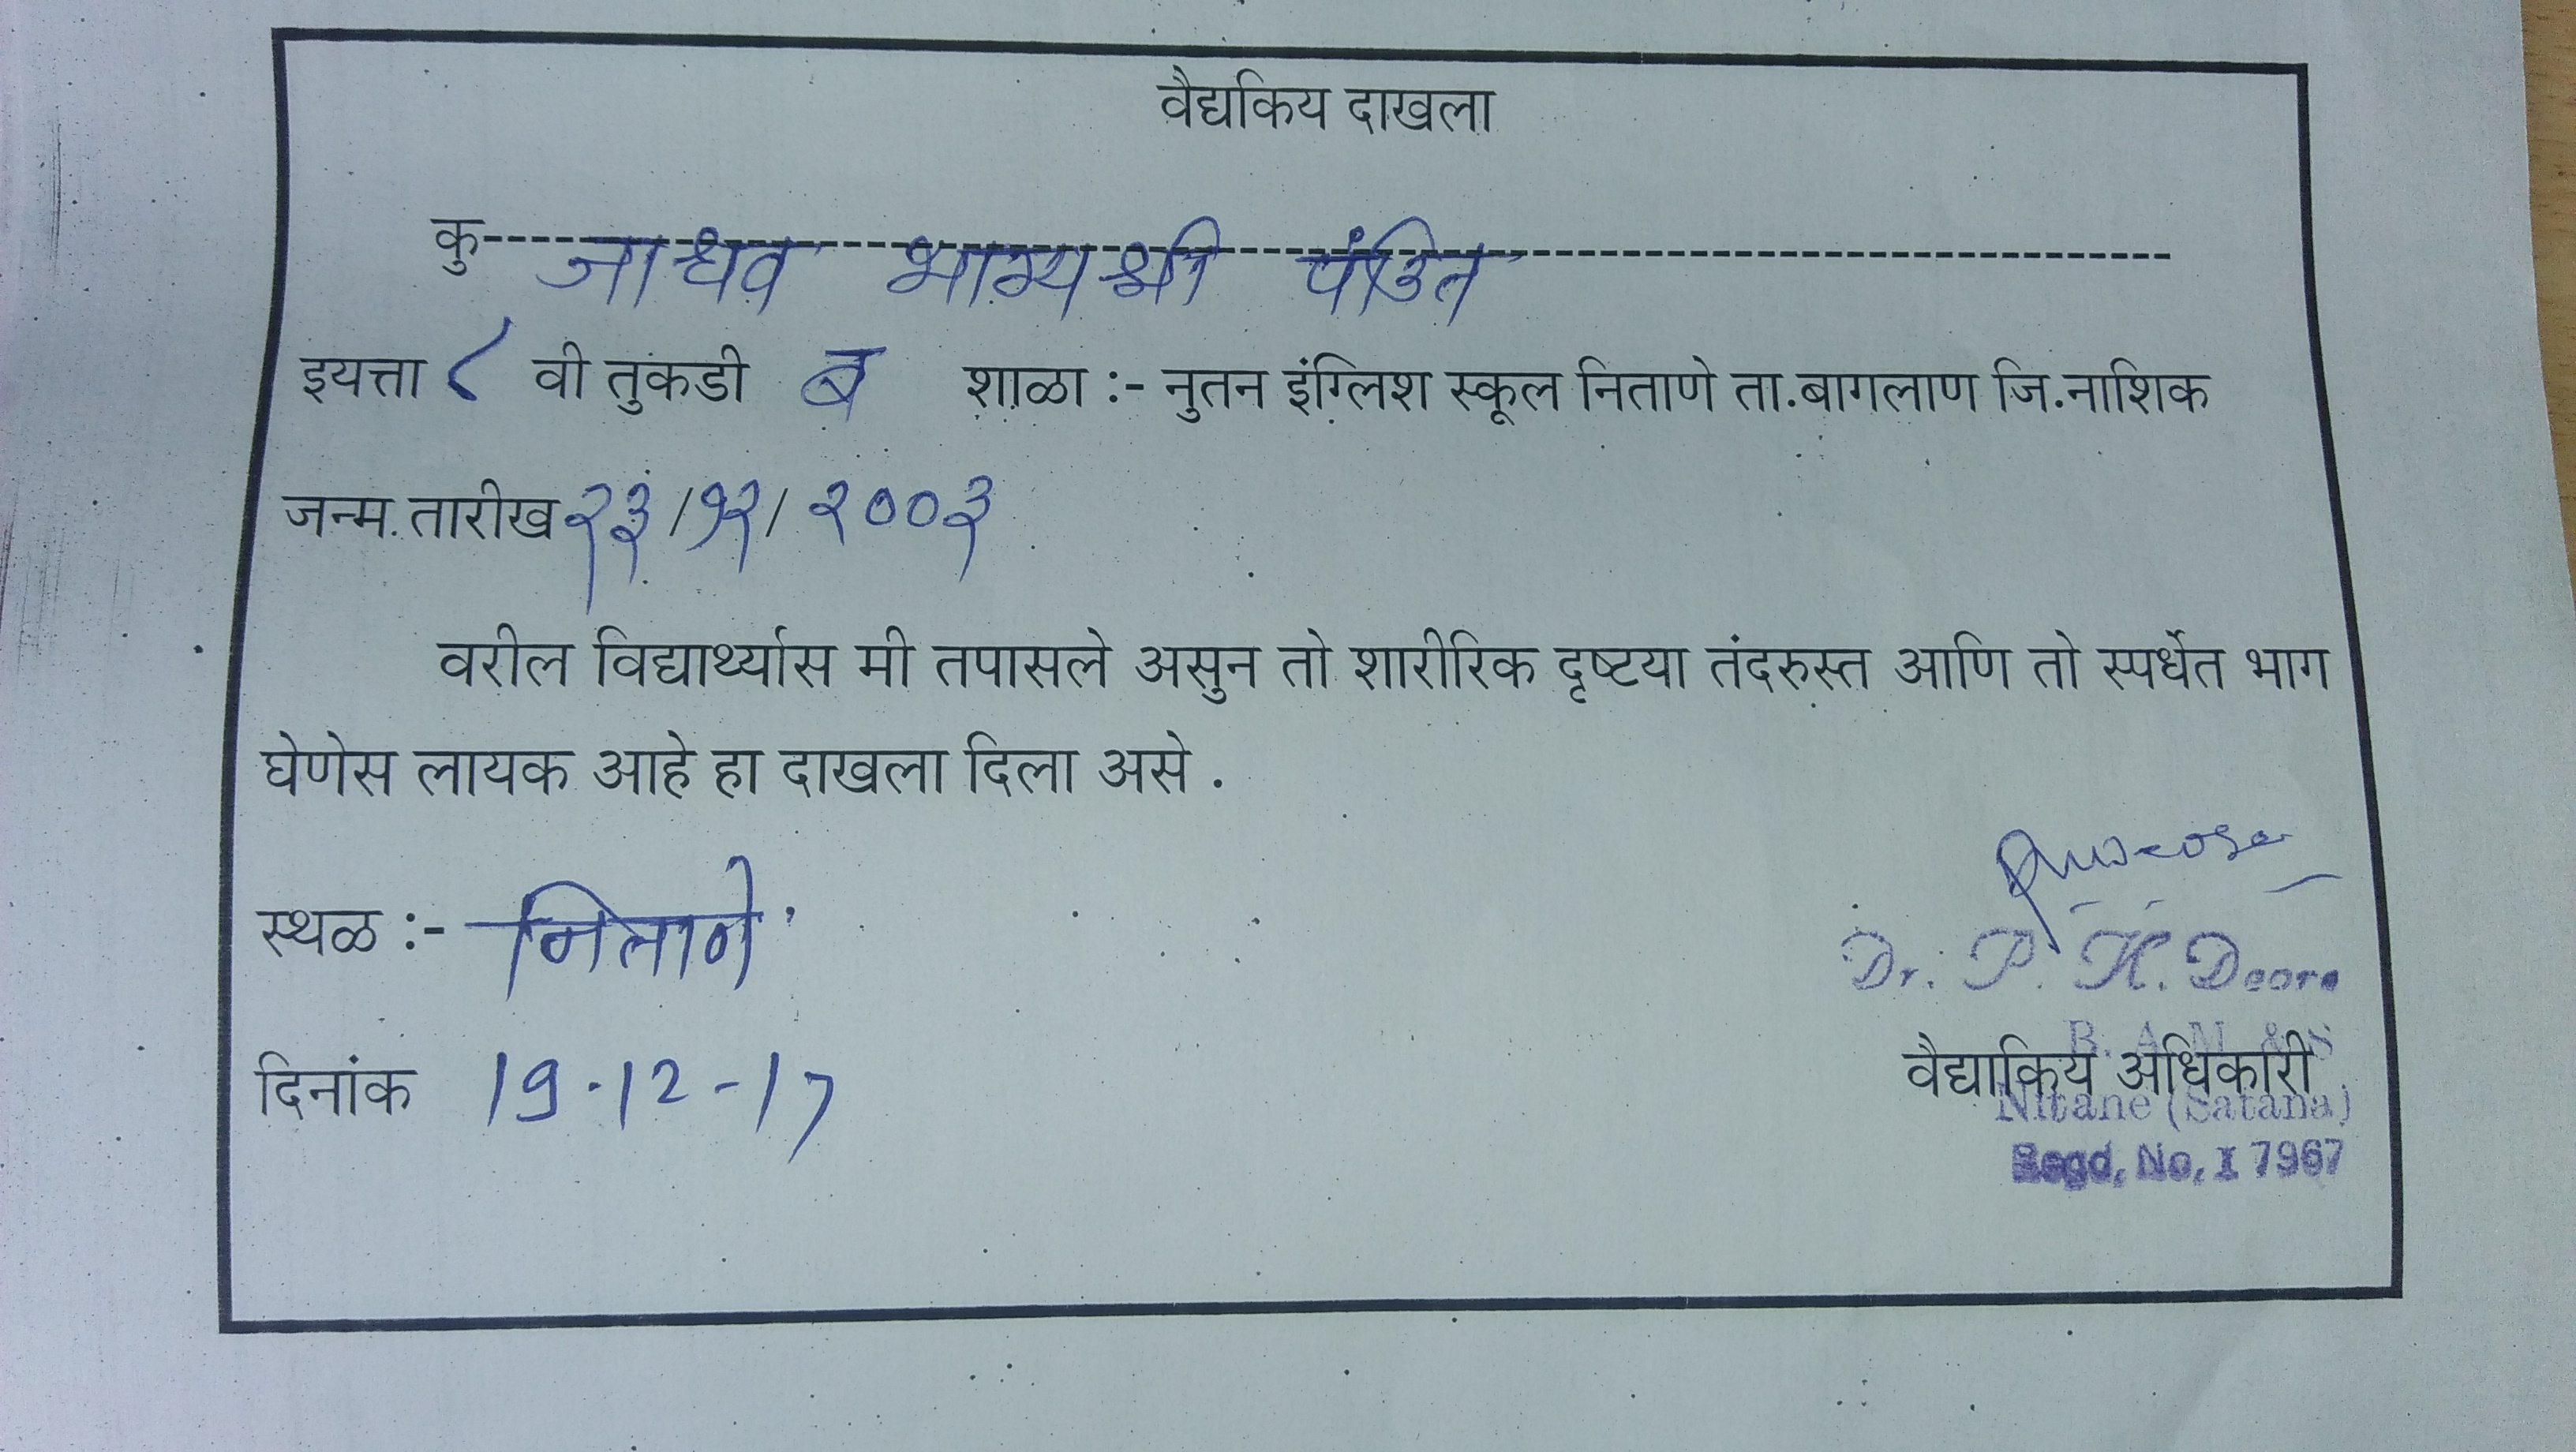 वैद्यकिय दाखला
कु जाधव भाग्यश्री पंडित
इयत्ता ८ वी तुकडी ब शाळा :- नुतन इंग्लिश स्कूल निताणे ता.बागलाण जि.नाशिक
जन्म.तारीख २३/१२/२००३
वरील विद्यार्थ्यास मी तपासले असुन तो शारीरिक दृष्टया तंदरुस्त आणि तो स्पर्धेत भाग
घेणेस लायक आहे हा दाखला दिला असे .
स्थळ :- निताने
Dr. P. H. Deore
B. A. M. & S
दिनांक 19.12-17
वैद्याकिय अधिकारी
Nitane (Satana)
Regd, No, I 7967